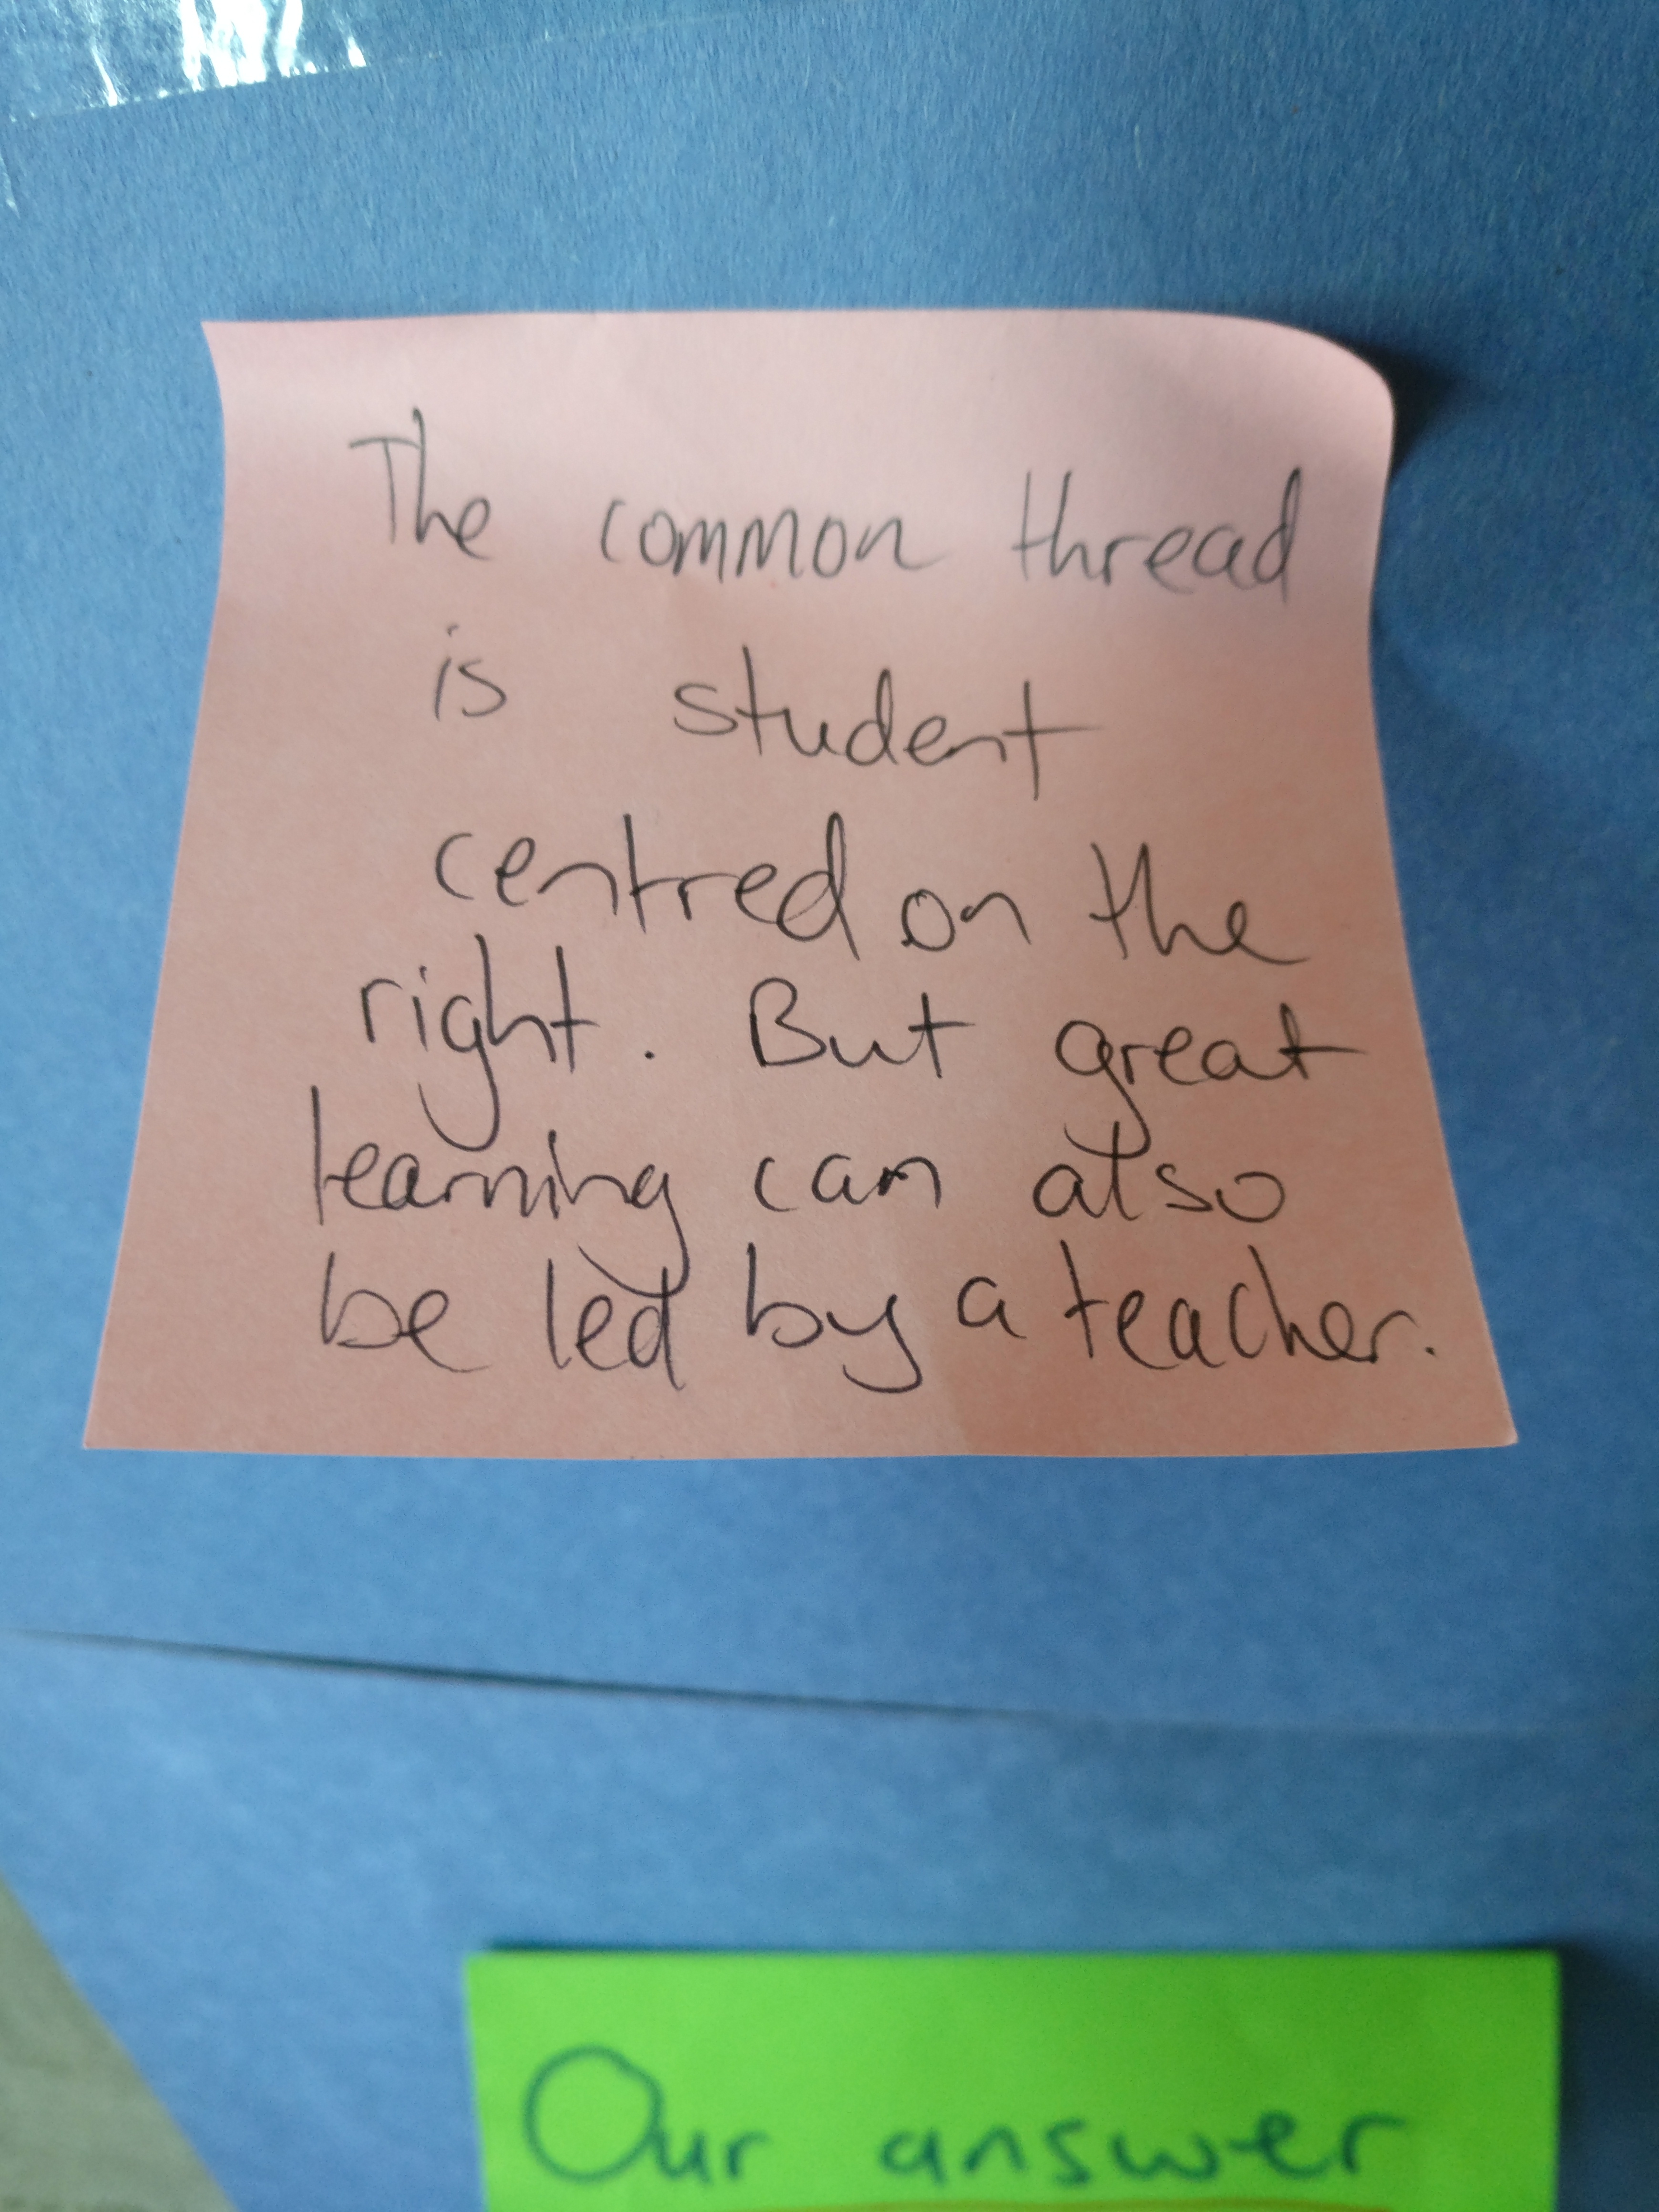 The common thread
is student
centred on the
right. But great
learning can also
be led by a teacher.
Our answer